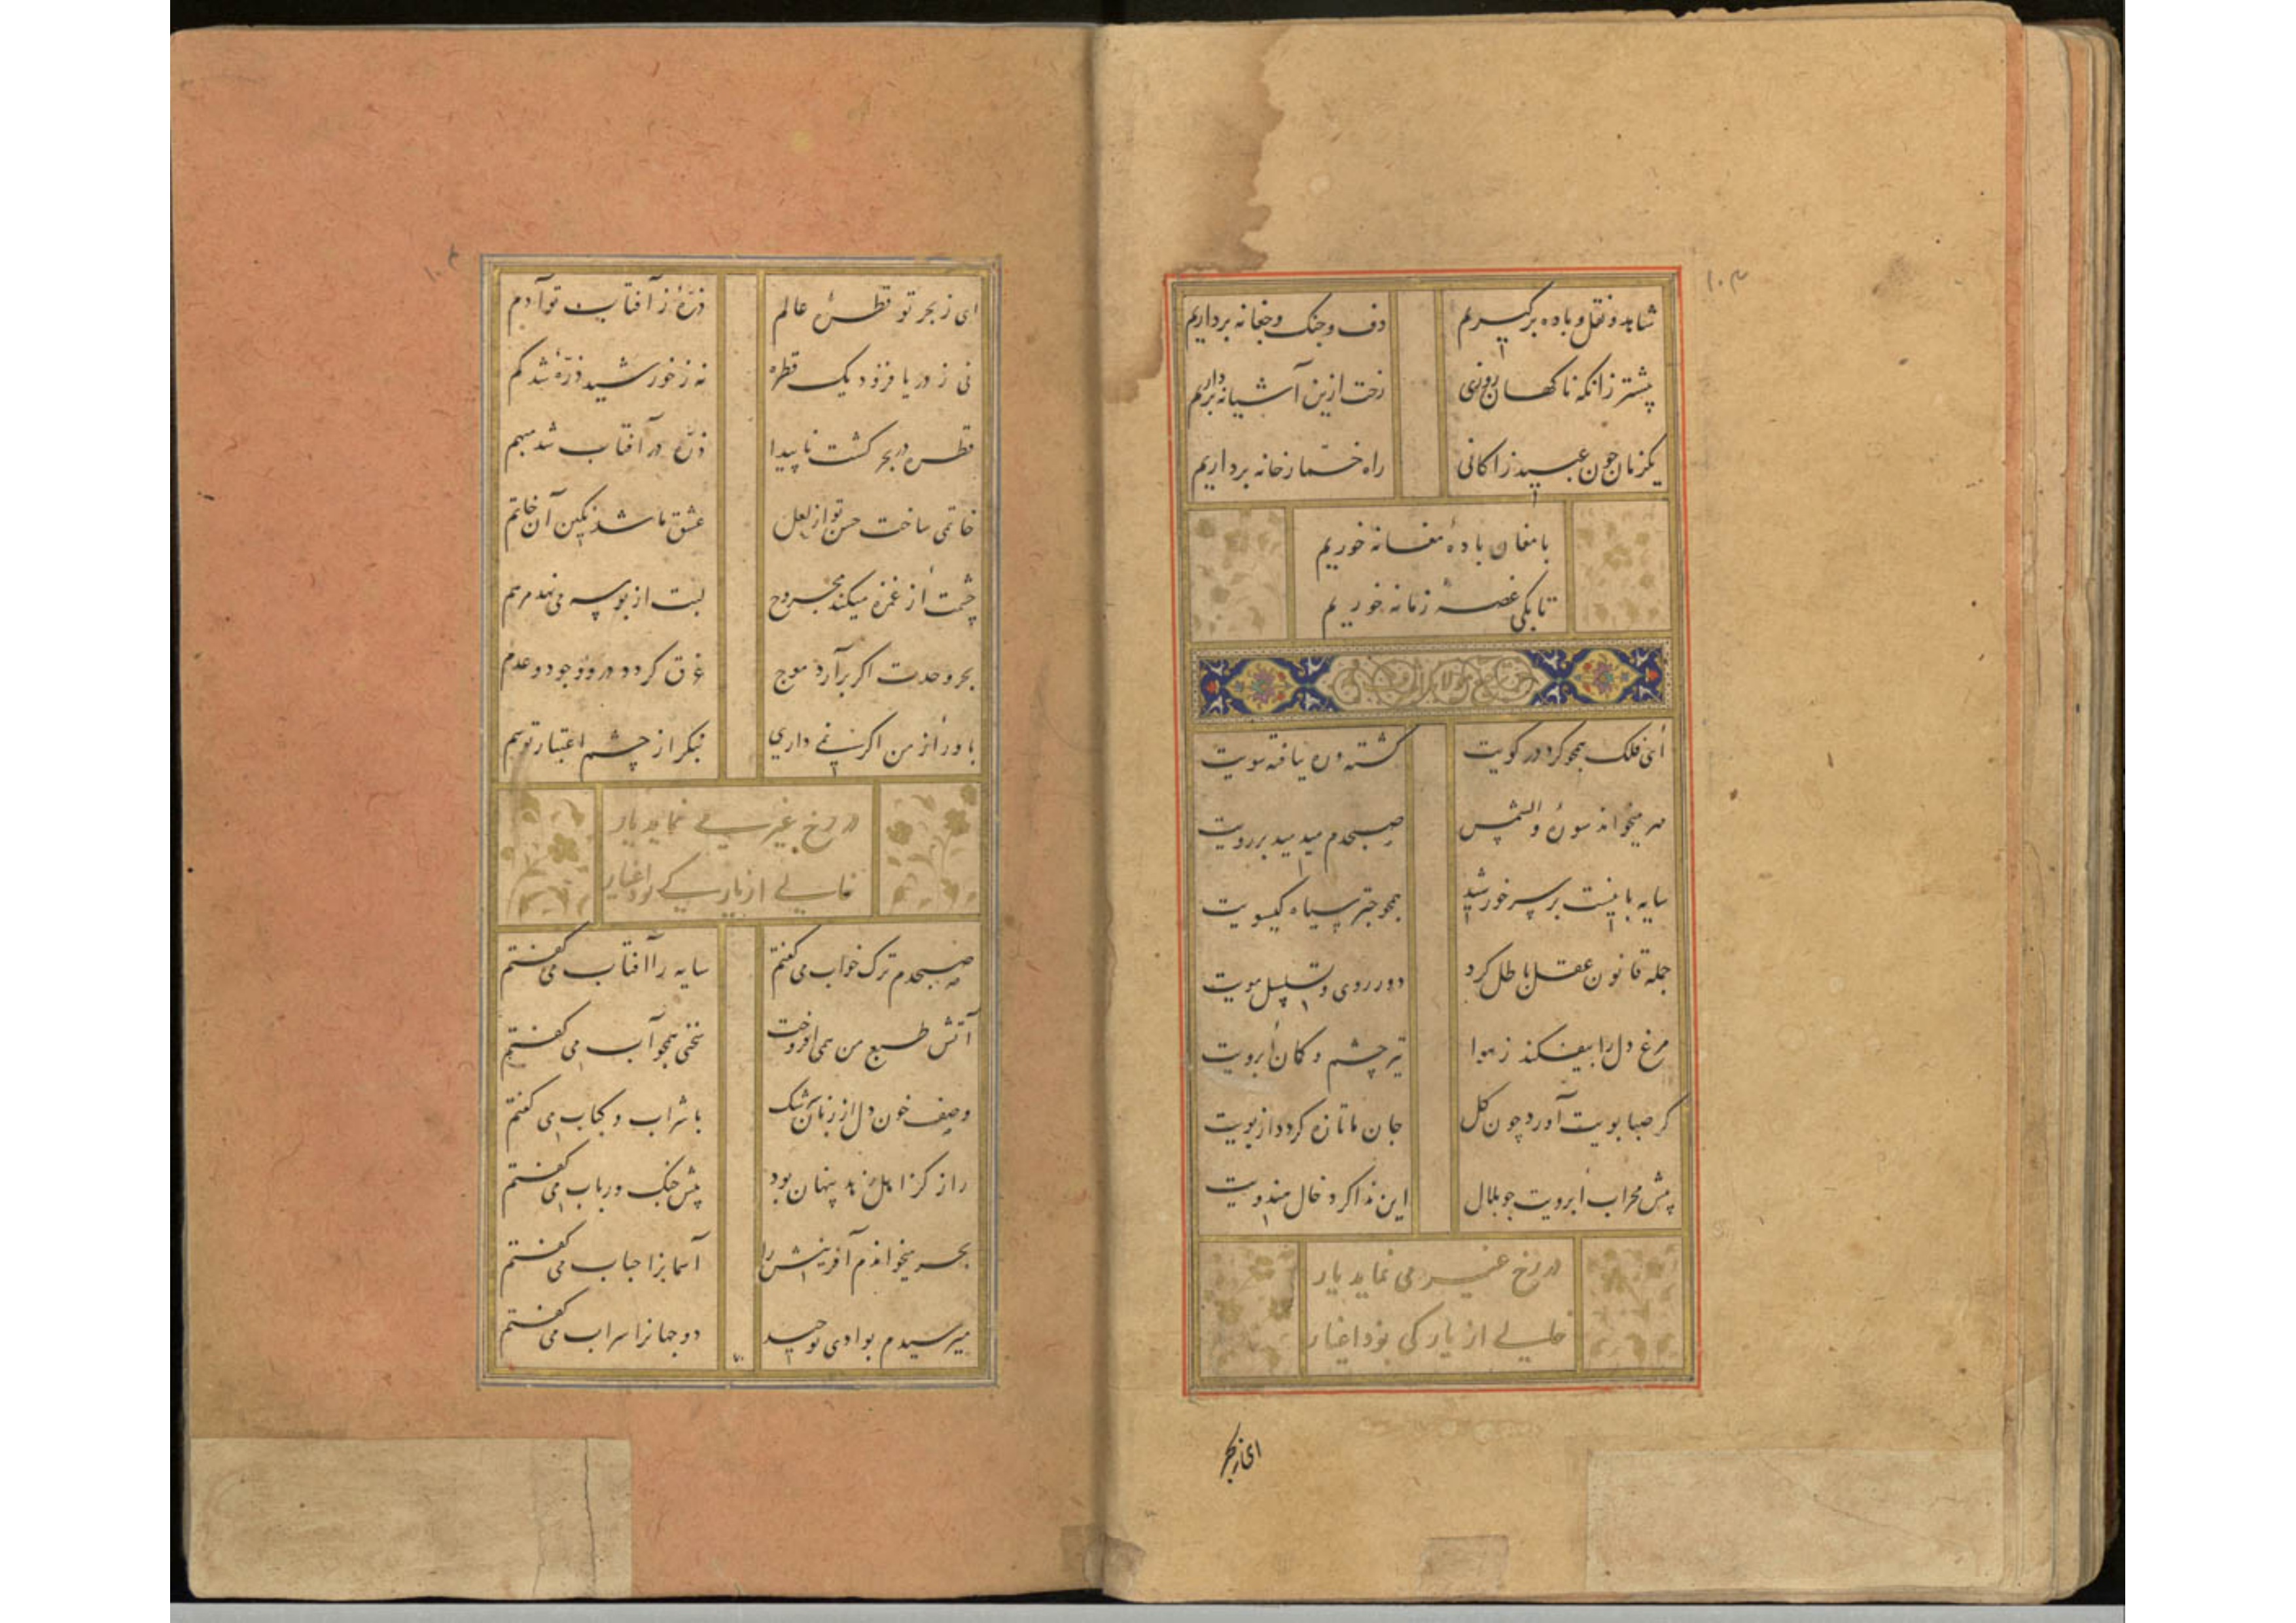 ۱۰۳
شاهد و نقل و باده برگیریم دف و چنک و چغانه برداریم
پیشتر زانکه ناکهان روزی رخت ازین آشیانه برداریم
یکزمان چون عبید زاکانی راه خمار خانه برداریم
با مغان بادهٔ مغانه خوریم
تا بکی غصهٔ زمانه خوریم
ای فلک همچو کرد در کویت کشته و ره نیافته سویت
مهر میخواند سورهٔ والشمس صبحدم میدمید بر رویت
سایه بانیست بر سر خورشید همچو چتر سیاه کیسویت
جمله قانون عقل باطل کرد دور روی و تسلسل مویت
مرغ دل را بیفکند ز هوا تیر چشم و کمان ابرویت
کر صبا بویت آورد چون کل جان ما تازه کردد از بویت
پیش محراب ابرویت چو بلال این ندا کرد خال هندویت
در رخ غیر می نماید یار
خالی از یار کی بود اغیار
ای ز بحر
۱۰۴
ای ز بحر تو قطرهٔ عالم ذرهٔ ز آفتاب تو آدم
نی ز دریا فزود یک قطره نه ز خورشید ذرهٔ شد کم
قطره در بحر کشت ناپیدا ذره در آفتاب شد مبهم
خاتمی ساخت حسن تو از لعل عشق ما شد نکین آن خاتم
چشمت از غمزه میکند مجروح لبت از بوسه می نهد مرهم
بحر وحدت اکر برآرد موج غرق کردد درو وجود و عدم
باور از من اکر نمی داری بنکر از چشم اعتبار تو هم
در رخ غیر می نماید یار
خالی از یار کی بود اغیار
صبحدم ترک خواب می کفتم سایه را آفتاب می کفتم
آتش طبع من همی افروخت سخنی همچو آب می کفتم
وصف خون دل از زبان سرشک با شراب و کباب می کفتم
راز کز اهل زهد پنهان بود پیش چنک و رباب می کفتم
بحر میخواندم آفرینش را آسمانرا حباب می کفتم
میرسیدم بوادی توحید دو جهانرا سراب می کفتم